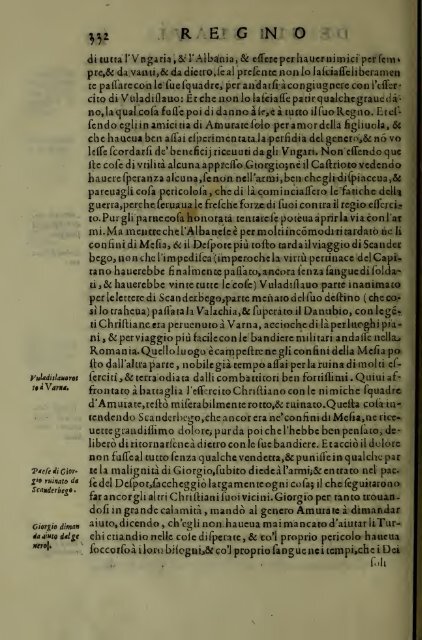 332 REGNO
di tutta l'Vngaria, & l'Albania, & essere per hauer nimici per sem
pre, & da vanti, & da dietro, se al presente non lo lasciasse liberamen
te passare con le sue squadre, per andarsi à congiugnere con l'esser-
cito di Vuladislauo: Et che non lo lasciasse patir qualche graue dá-
no, la qual cosa fusse poi di danno à se, e à tutto il suo Regno. Et es-
sendo egli in amicitia di Amurate solo per amor della figliuola, &
che haueua ben assai esperimentata la perfidia del genero, & nó vo
lesse scordarsi de' beneficij riceuuti da gli Vngari. Non essendo que
ste cose di vtilità alcuna appresso Giorgio; ne il Castrioto vedendo
hauere speranza alcuna, se non nell'armi, ben che gli dispiaccua, &
pareuagli cosa pericolosa, che di là cominciassero le fatiche della
guerra, perche seruaua le fresche forze di suoi contra il regio esserci-
to. Pur gli parue cosa honorata tentare se poteua aprir la via con l'ar
mi. Ma mentre che l'Albanese è per molti incòmodi ritardato ne li
confini di Mesia, & il Despote più tosto tarda il viaggio di Scander
bego, non che l'impedisca (imperoche la virtù pertinace del Capi-
tano hauerebbe finalmente passato, ancora senza sangue di solda-
ti, & hauerebbe vinte tutte le cose) Vuladislauo parte inanimato
per le lettere di Scanderbego, parte menato del suo destino (che co-
si lo traheua) passata la Valachia, & superato il Danubio, con le gé-
ti Christiane era peruenuto à Varna, accioche di là per luoghi pia-
ni, & per viaggio più facile con le bandiere militari andasse nella
Romania. Quello luogo è campestre ne gli confini della Mesia po
sto dall'altra parte, nobile già tempo assai per la ruina di molti es-
Vuladislauo ros
to à Varna.
serciti, & terra odiata dalli combattitori ben fortissimi. Quiui af-
frontato à battaglia l'essercito Christiano con le nimiche squadre
d'Amutate, restò miserabilmente rotto, & ruinato. Questa cosa in-
tendendo Scanderbego, che ancor era ne' confini di Mesia, ne rice-
uette grandissimo dolore, pur da poi che l'hebbe ben pensato, de-
liberò di ritornarsene à dietro con le sue bandiere. Et acciò il dolore
non fusse al tutto senza qualche vendetta, & punisse in qualche par
Paese di Gior-
gio ruinato da
Scanderbego.
te la malignità di Giorgio, subito diede à l'armi; & entrato nel pae-
se del Despot, saccheggiò largamente ogni cosa; il che seguitarono
far ancor gli altri Christiani suoi vicini. Giorgio per tanto trouan-
dosi in grande calamità, mandò al genero Amurate à dimandar
Giorgio diman
da aiuto del ge
nero.
aiuto, dicendo, ch'egli non haueua mai mancato d'aiutar li Tur-
chi etiandio nelle cose disperate, & co'l proprio pericolo haueua
soccorso à i loro bisogni, & co'l proprio sangue ne i tempi, che i Dei
soli